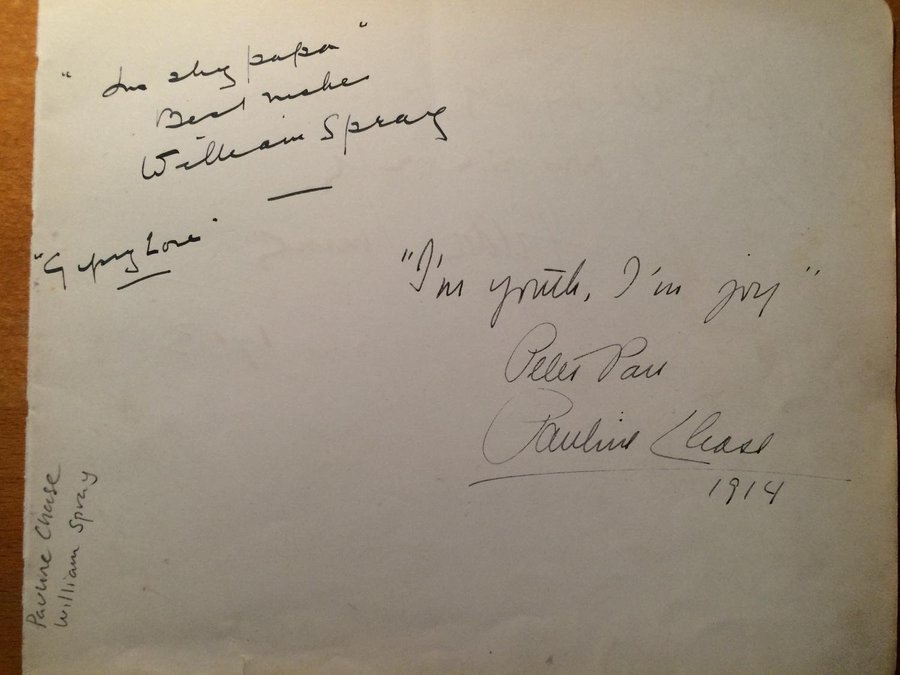 "I'm shy papa"
Best wishes
William Spray
"Gypsy Love"
"I'm youth, I'm joy"
Peter Pan
Pauline Chase
1914
Pauline Chase
William Spray